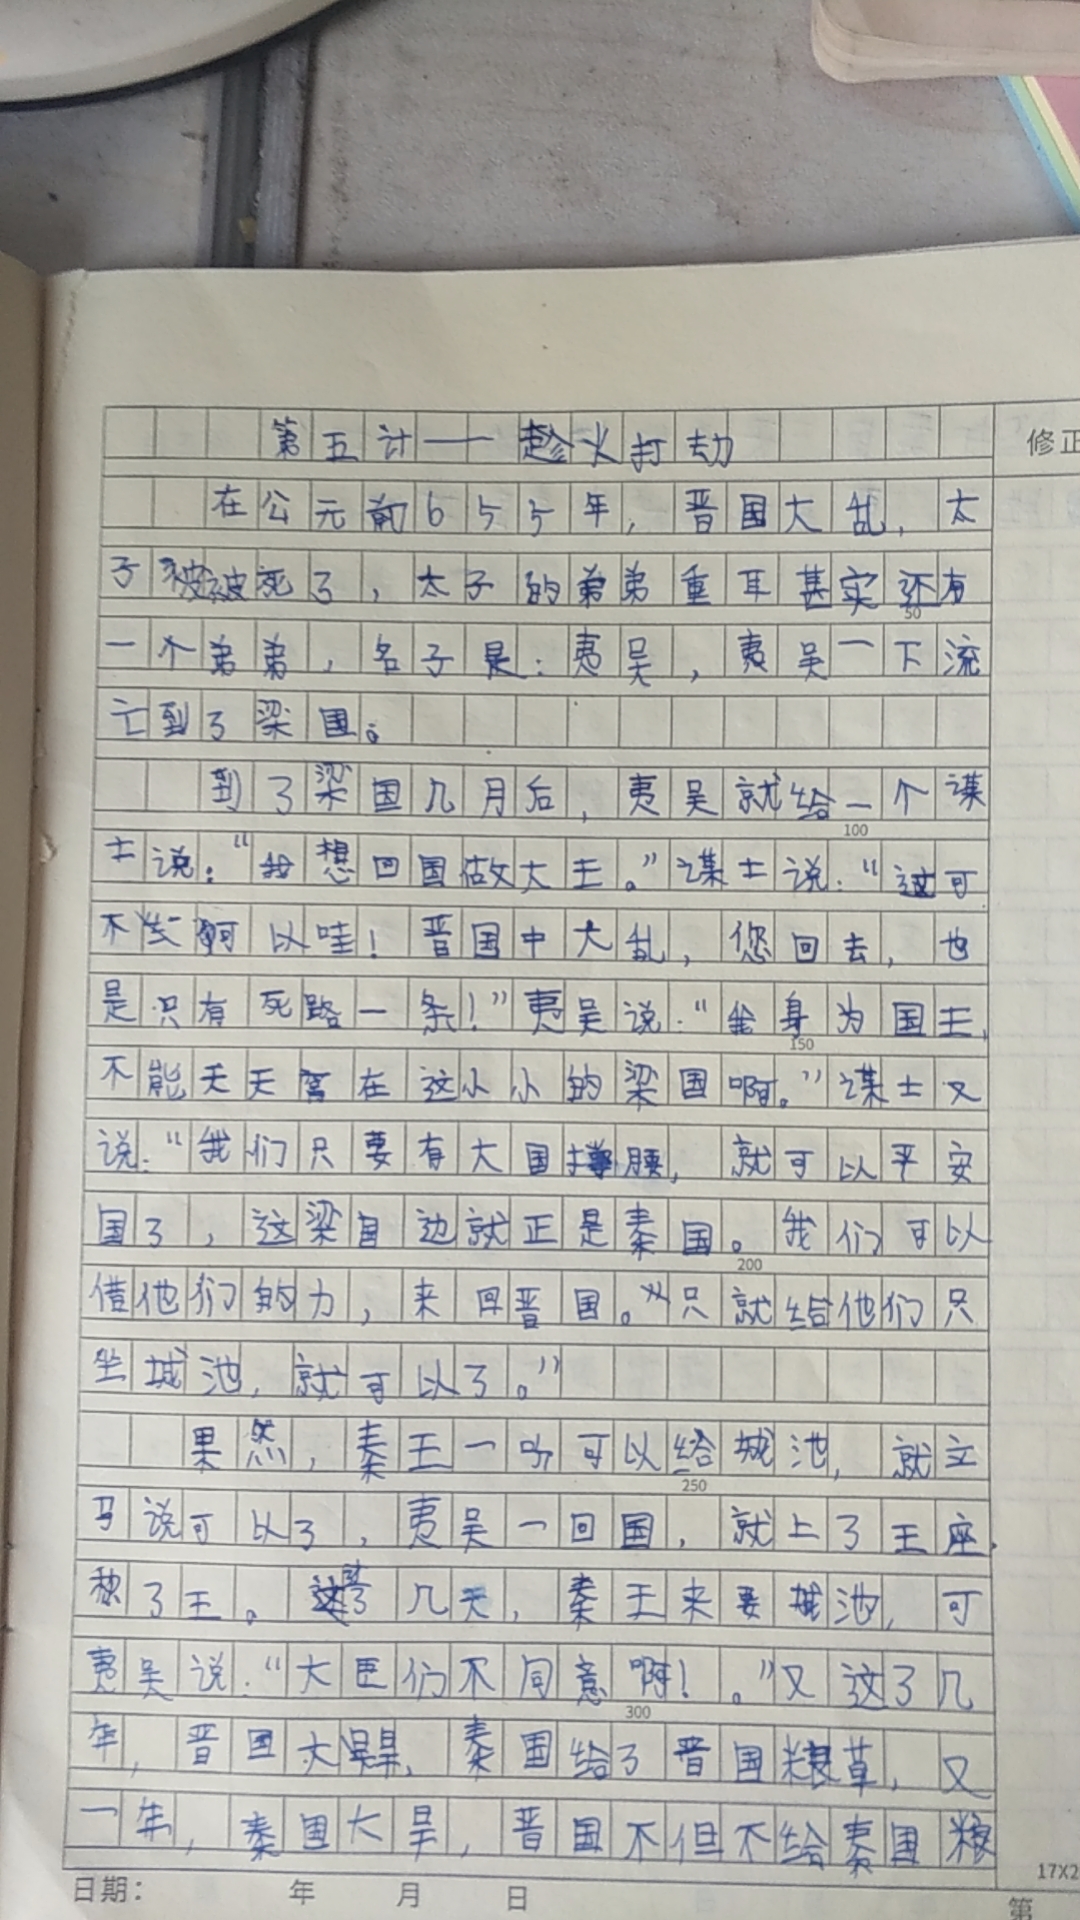 第五计——趁火打劫
修正
在公元前655年，晋国大乱，太
子被死了，太子的弟弟重耳甚实还有
50
一个弟弟，名子是：夷吴，夷吴一下流
亡到了梁国。
到了梁国几月后，夷吴就给一个谋
100
士说：“我想回国做大王。”谋士说：“这可
不可以哇！晋国中大乱，您回去，也
是只有死路一条！”夷吴说：“坐身为国王，
150
不能天天窝在这小小的梁国啊。”谋士又
说：“我们只要有大国撑腰，就可以平安
国了，这梁自边就正是秦国。我们可以
200
借他们的力，来回晋国。”只就给他们只
坐城池，就可以了。”
果然，秦王一听可以给城池，就立
250
马说可以了，夷吴一回国，就上了王座，
了王。这了几天，秦王来要城池，可
夷吴说：“大臣们不同意啊！。”又这了几
300
年，晋国大旱，秦国给了晋国粮草，又
一年，秦国大旱，晋国不但不给秦国粮
17X2
日期： 年 月 日
第